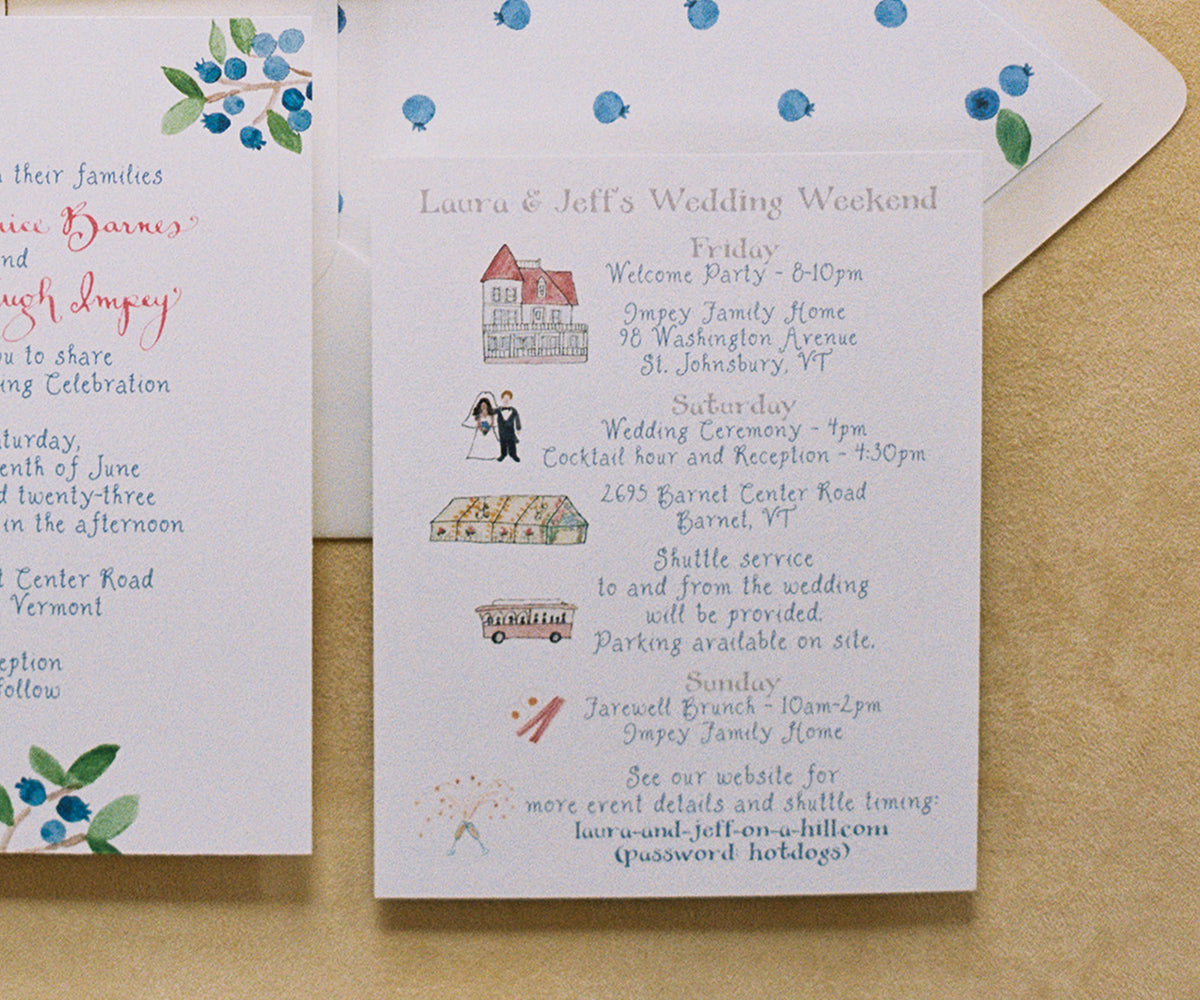 their families
Barnes
and
Impey
to share
Celebration
of June
twenty-three
in the afternoon
Center Road
Vermont
follow
Laura & Jeff's Wedding Weekend
Friday
Welcome Party - 8-10pm
Impey Family Home
98 Washington Avenue
St. Johnsbury, VT
Saturday
Wedding Ceremony - 4pm
Cocktail hour and Reception - 4:30pm
2695 Barnet Center Road
Barnet, VT
Shuttle service
to and from the wedding
will be provided.
Parking available on site.
Sunday
Farewell Brunch - 10am-2pm
Impey Family Home
See our website for
more event details and shuttle timing:
laura-and-jeff-on-a-hill.com
(password: hotdogs)